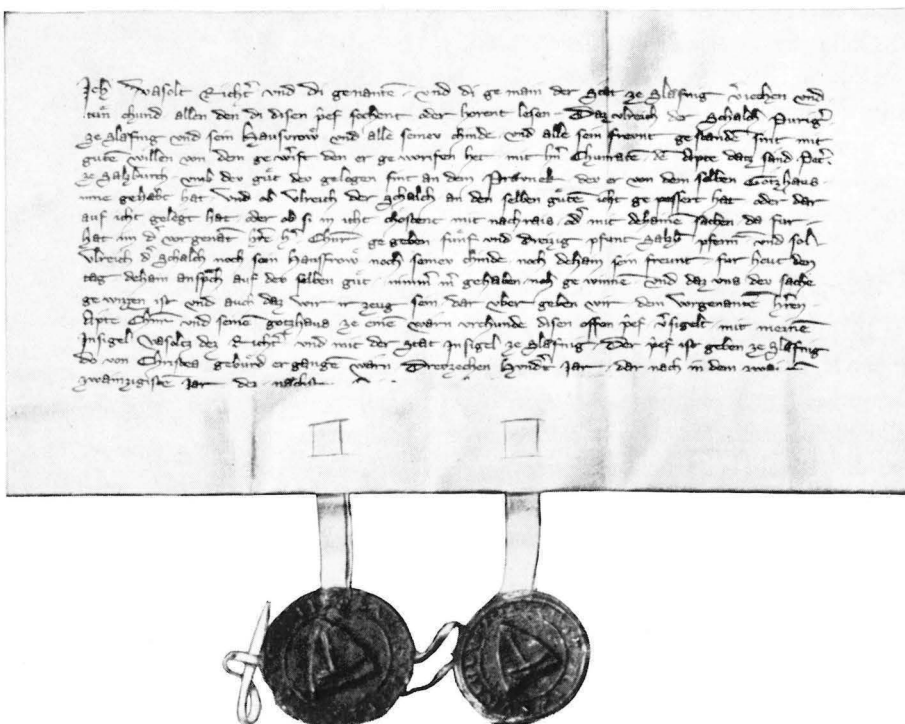 Ich Wasolt Richt̄ · vnd di genantē · vnd di ge main der Stat ze Slafnig v̄iechen vnd
tůn chund allen den di disen p̄ef sechent oder horent lesen · Daz vlreich der Schalch Puriḡ
ze Slafnig vnd sein Hausvrow vnd alle seinev chinde · vnd alle sein frevnt ge standē sint mit
gůtē willen von dem ge w̄ft den er ge worifen het · mit h̄n Chunratē dē Apte datz sand Pet̄
ze Saltzburch · vmb dev gůt dev gelegen sint an dem Pravnek · dev er von dem selben Gotzhaus
inne gehabt hat · vnd ob vlreich der Schalch an den selben gůtē icht ge pessert hat oder dar
auf icht gelegt hat oder ob si in icht chostent mit nachrais od̄ mit dehainē sachen da fur
hat im d̄ vorgenāt h̄re h̄ Chūr ge geben fůnf vnd dreizig pfunt Saltzb pfenn̄ · vnd sol
vlreich d̄ Schalch noch sein hausfrow noch seinev chinde noch dehain sein freunt fur heut den
tag dehain ansp̄ch auf dev selben gůt · nimm̄ m̄ gehaben noch ge winnē · vnd daz vns dev sache
ge wizzen ist vnd auch daz wir ir zeug sein dar vber geben wir dem vorgenantē h̄ren
Apte Chūnr vnd seinē gotzhaus ze einē warn vrchunde disen offen p̄ef v̄sigelt mit meinē
Insigel Vasoltz dez Richt̄ vnd mit der Stat Insigel ze Slafnig · Der p̄ef ist geben ze Slafnig
do von Christes gebůrd ergangē warn Drevtzechen hvnd̄t Jar · dar nach in dem zwai
zwainzigistē Jar dez nachst